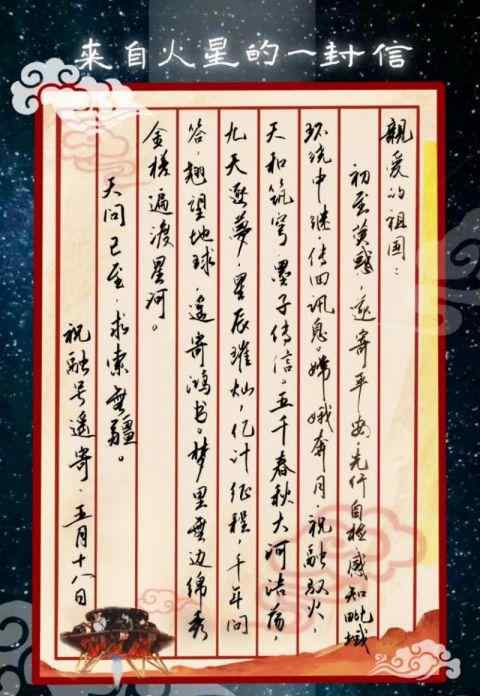 来自火星的一封信
親爱的祖国：
初至荧惑，遥寄平安，先行自检感知毗域
环绕中继，传回讯息。嫦娥奔月，祝融驭火，
天和筑穹，墨子传信。五千春秋大河浩荡，
九天逐夢，星辰璀灿，亿计征程，千年问
答，翘望地球，遥寄鸿书。梦里無边锦秀
金槎遍渡星河。
天问已至，求索無疆。
祝融号遥寄·五月十八日